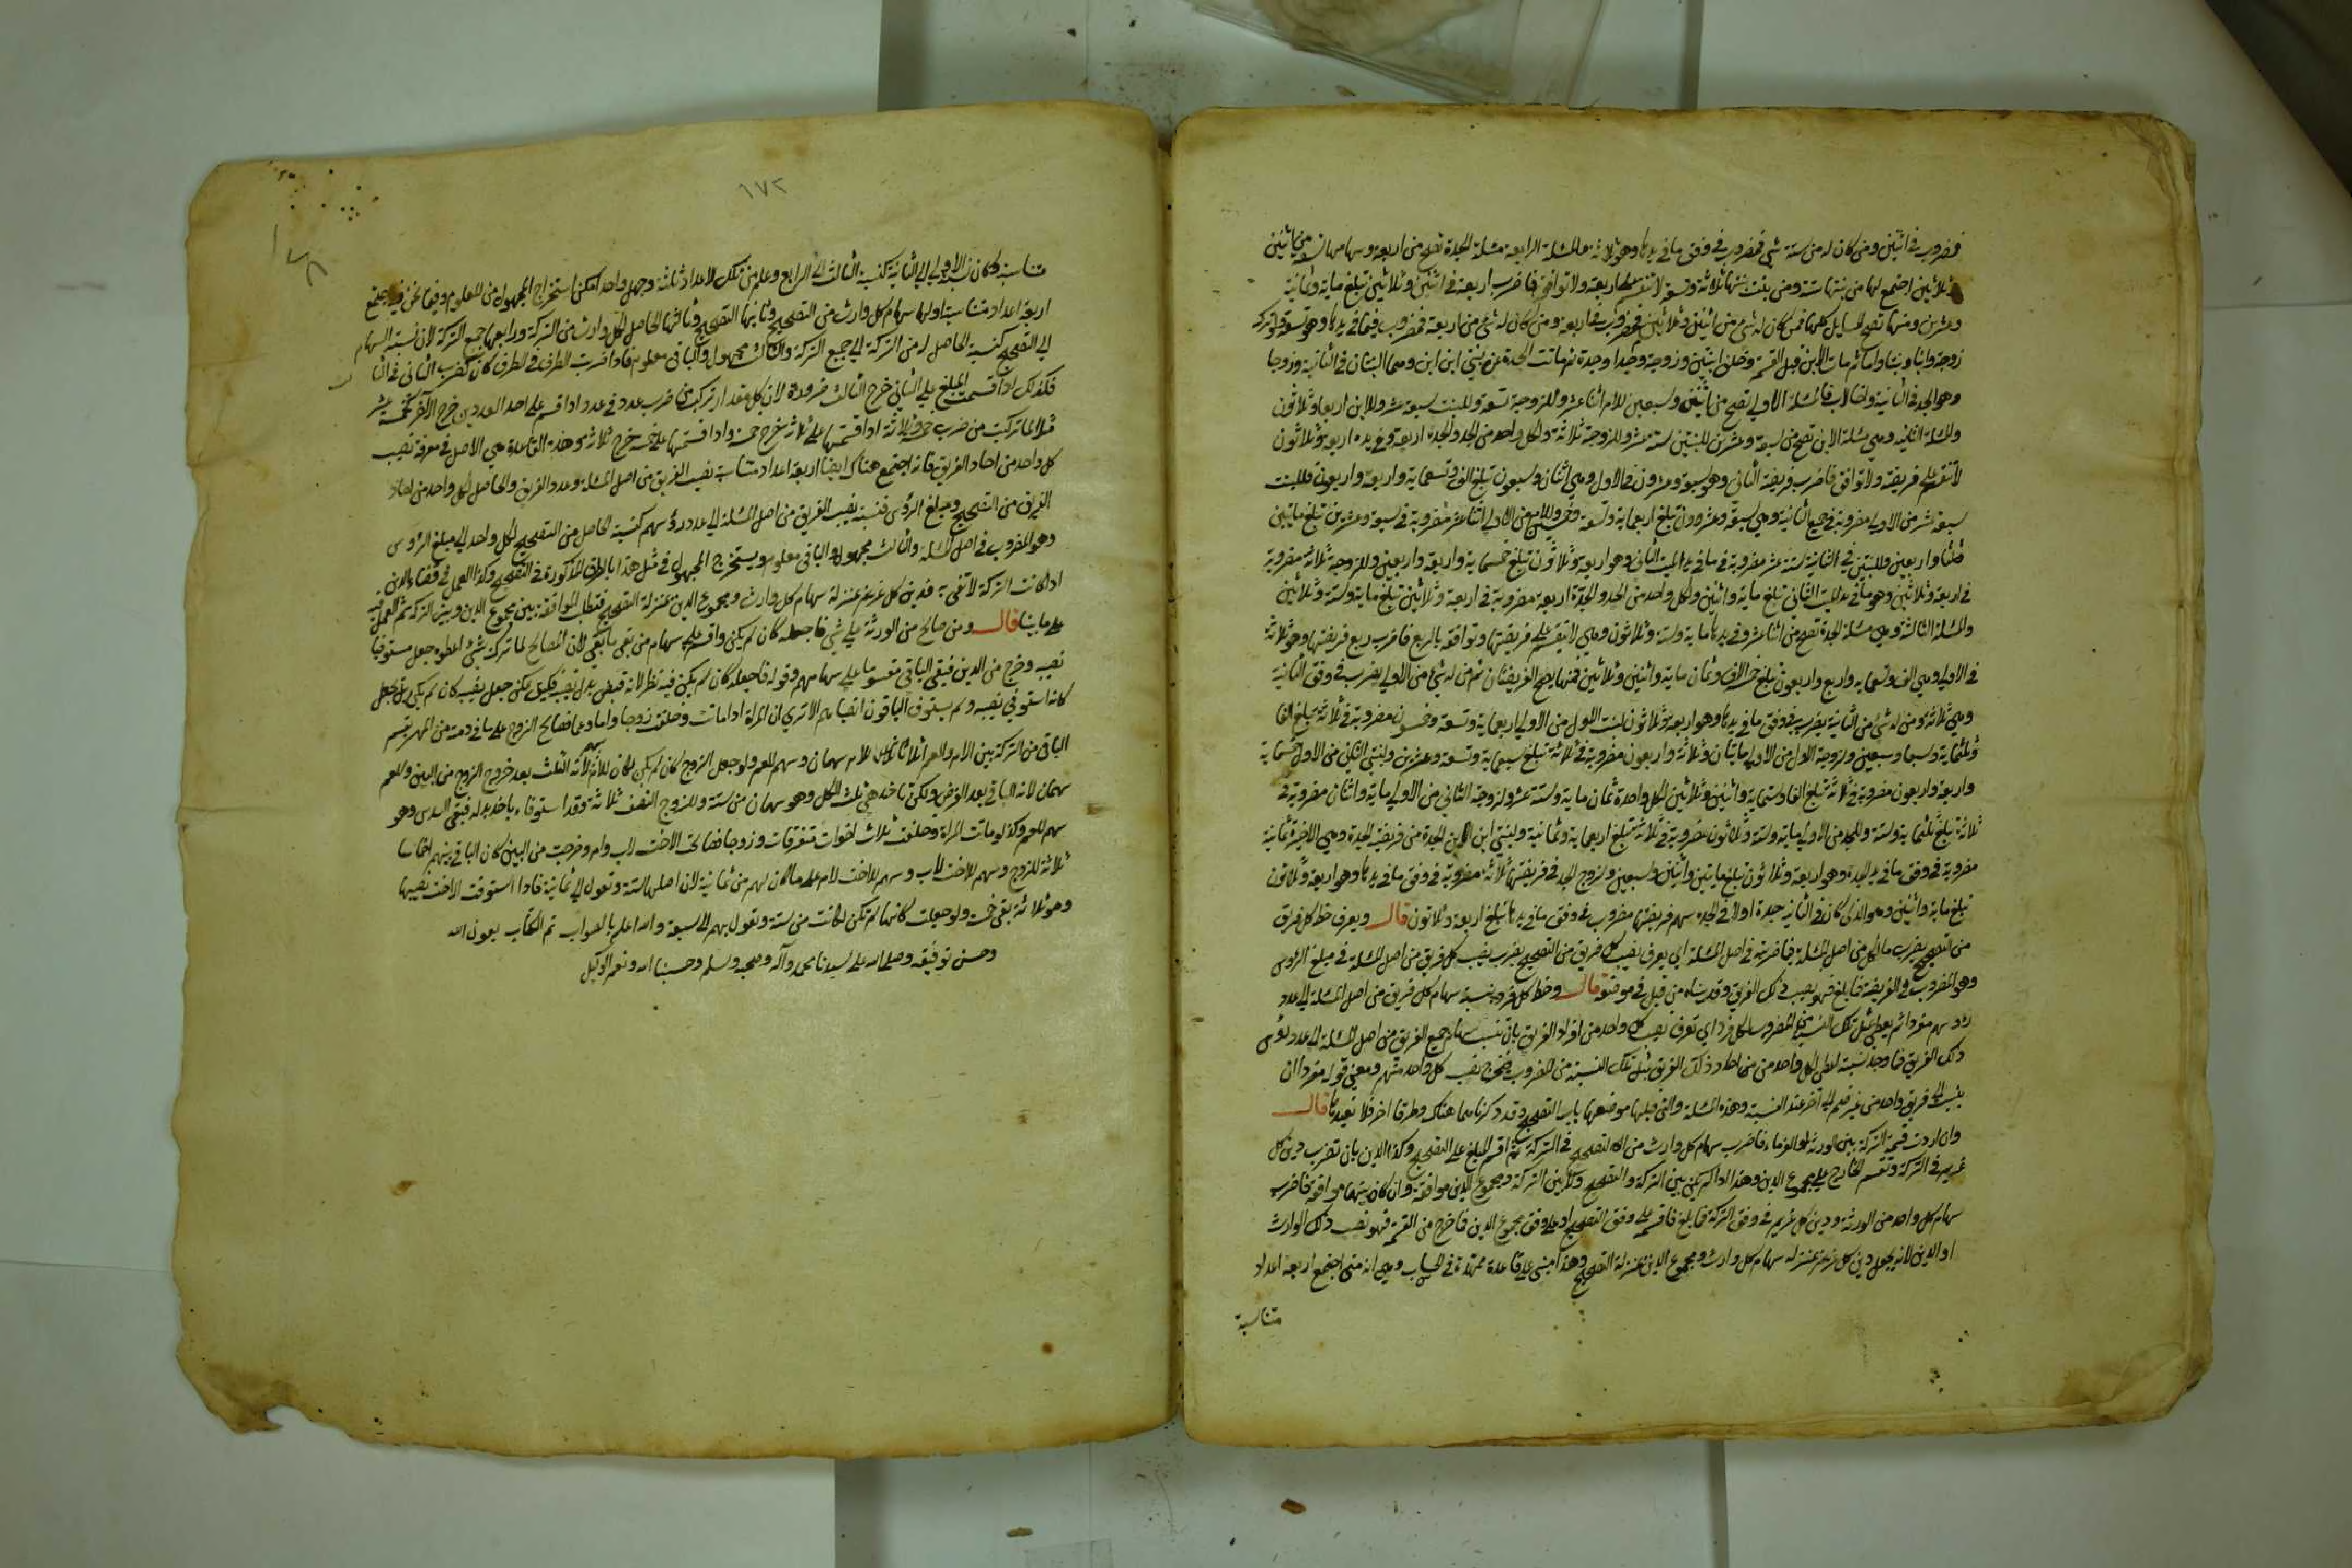 فمضروب في اثنين ومن كان له من ستة شيء فمضروب في وفق ما في يدها وهو ثلاثة والمسئلة الرابعة مسئلة الجدة تصح من اربعة وسهامها من اثنين
وثلاثين اجتمع لها من بنتها ستة ومن بنت بنتها ثلاثة وتسعة لا تنقسم على اربعة ولا توافق فاضرب اربعة في اثنين وثلاثين تبلغ مایة وثمانية
وعشرين ومنها تصح المسايل كلها فمن كان له شيء من اثنين وثلاثين فمضروب في اربعة ومن كان له شيء من اربعة فمضروب فيما في يدها وهو تسعة
زوجة وابنا وبنتا واما ثم مات الابن قبل القسمة وخلف ابنتين وزوجة وجدا وجدة ثم ماتت الجدة عن بنتي ابن ابن وهما البنتان في الثانية وزوجا
وهو الجد في الثانية فالمسئلة الاولى تصح من اثنين وسبعين للام اثنا عشر وللزوجة تسعة وللبنت سبعة عشر وللابن اربعة وثلاثون
والمسئلة الثانية وهي مسئلة الابن تصح من سبعة وعشرين للبنتين ستة عشر وللزوجة ثلاثة ولكل واحد من الجد والجدة اربعة وفي يده اربعة وثلاثون
لا تنقسم على فريضته ولا توافق فاضرب فريضة الثاني وهو سبعة وعشرون في الاول وهي اثنان وسبعون تبلغ الف وتسعماية واربعة واربعون فللبنت
سبعة عشر من الاولى مضروبة في جميع الثانية وهي سبعة وعشرون تبلغ اربعماية وتسعة وخمسين وللام من الاولى اثنا عشر مضروبة في سبعة وعشرين تبلغ ثلثماية
واربعة وعشرين وللبنتين في الثانية ستة عشر مضروبة في ما في يد الميت الثاني وهو اربعة وثلاثون تبلغ خمسماية واربعة واربعين وللزوجة ثلاثة مضروبة
في اربعة وثلاثين وهو ما في يد الميت الثاني تبلغ ماية واثنين ولكل واحد من الجد والجدة اربعة مضروبة في اربعة وثلاثين تبلغ ماية وستة وثلاثين
والمسئلة الثالثة وهي مسئلة الجدة تصح من اثنا عشر وفي يدها ماية وستة وثلاثون وهي لا تنقسم على فريضتها وتوافقه بالربع فاضرب ربع فريضتها وهو ثلاثة
في الاولى وهي الف وتسعماية واربع واربعون تبلغ خمسة الاف وثمان ماية واثنين وثلاثين فمنها تصح الفريضتان ثم من له شيء من الاولى يضرب في وفق الثانية
وهي ثلاثة ومن له شيء من الثانية يضرب في وفق ما في يدها وهو اربعة وثلاثون لبنت الاول من الاولى اربعماية وتسعة وخمسون مضروبة في ثلاثة تبلغ الفا
وثلثماية وسبعا وسبعين ولزوجة الاول من الاولى مايتان وثلاثة واربعون مضروبة في ثلاثة تبلغ سبعماية وتسعة وعشرين ولبنتي الثاني من الاولى خمسماية
واربعة واربعون مضروبة في ثلاثة تبلغ الفا وستماية واثنين وثلاثين لكل واحدة ثمان ماية وستة عشر ولزوجة الثاني من الاولى ماية واثنان مضروبة في
ثلاثة تبلغ ثلثماية وستة وللجد من الاولى ماية وستة وثلاثون مضروبة في ثلاثة تبلغ اربعماية وثمانية ولبنتي ابن ابن الجدة من فريضة الجدة وهي الاخيرة ثمانية
مضروبة في وفق ما في يد الجدة وهو اربعة وثلاثون تبلغ مايتين واثنين وسبعين ولزوج الجدة في فريضتها ثلاثة مضروبة في وفق ما في يدها وهو اربعة وثلاثون
تبلغ ماية واثنين وهو الذي كان في الثانية جدة اولا في الجدة سهم فريضتها مضروب في وفق ما في يدها تبلغ اربعة وثلاثون قال ويعرف حظ كل فريق
من التصحيح بضرب ما لكل من اصل المسئلة فيما ضربته في اصل المسئلة اي يعرف نصيب كل فريق من التصحيح بضرب نصيب كل فريق من اصل المسئلة في مبلغ الرؤس
وهو المضروب في الفريضة فما بلغ فهو نصيب ذلك الفريق وقد بيناه من قبل في موضعه قال وحظ كل فرد بنسبة سهام كل فريق من اصل المسئلة الى عدد
رؤسهم مفردا ثم يعطى بمثل تلك النسبة من المضروب لكل فرد اي تعرف نصيب كل واحد من افراد الفريق بان تنسب سهام جميع الفريق من اصل المسئلة الى عدد رؤس
ذلك الفريق فما وجد نسبة اعطى لكل واحد من احاد ذلك الفريق بمثل تلك النسبة من المضروب فيخرج نصيب كل واحد منهم ومعنى قوله مفردا ان
ينسب الى فريق واحد من غير ضم الى اخر عند النسبة وهذه المسئلة والتي قبلها موضعهما باب التصحيح وقد ذكرناهما هناك وطرقا اخر فلا نعيدها قال
وان اردت قسمة التركة بين الورثة او الغرماء فاضرب سهام كل وارث من التصحيح في التركة ثم اقسم المبلغ على التصحيح وكذا الدين بان تضرب دين كل
غريم في التركة وتقسم الخارج على مجموع الدين وهذا اذا لم يكن بين التركة والتصحيح ولا بين التركة ومجموع الدين موافقة وان كان بينهما موافقة فاضرب
سهام كل واحد من الورثة ودين كل غريم في وفق التركة فما بلغ فاقسمه على وفق التصحيح او على وفق مجموع الدين فما خرج من القسمة فهو نصيب ذلك الوارث
او الدين لانه يجعل دين كل غريم بمنزلة سهام كل وارث ومجموع الدين بمنزلة التصحيح وهذا مبني على قاعدة ممهدة في الحساب وهي انه متى اجتمع اربعة اعداد
متناسبة
١٧٢
متناسبة وكان نسبة الاولى الى الثانية كنسبة الثالث الى الرابع وعلم من تلك الاعداد ثلثة وجهل واحد امكن استخراج المجهول من المعلوم وفيما نحن فيه اجتمع
اربعة اعداد متناسبة اولها سهام كل وارث من التصحيح وثانيها التصحيح وثالثها الحاصل لكل وارث من التركة ورابعها جميع التركة لان نسبة السهام
الى التصحيح كنسبة الحاصل له من التركة الى جميع التركة والثالث مجهول والباقي معلوم فاذا ضربت الطرف في الطرف كان كضرب الثاني في الثالث
فكذلك اذا قسمت المبلغ على الثاني خرج الثالث ضرورة لان كل مقدار تركب من ضرب عدد في عدد اذا قسم على احد العددين خرج الآخر كخمسة عشر
مثلا لما تركبت من ضرب خمسة في ثلاثة اذا قسمتها على ثلاثة خرج خمسة واذا قسمتها على خمسة خرج ثلاثة وهذه القاعدة هي الاصل في معرفة نصيب
كل واحد من احاد الفريق فانه اجتمع هناك ايضا اربعة اعداد متناسبة نصيب الفريق من اصل المسئلة وعدد الفريق والحاصل لكل واحد من احاد
الفريق من التصحيح ومبلغ الرؤس فنسبة نصيب الفريق من اصل المسئلة الى عدد رؤسهم كنسبة الحاصل من التصحيح لكل واحد الى مبلغ الرؤس
وهو المضروب في اصل المسئلة والثالث مجهول والباقي معلوم ويستخرج المجهول في مثل هذا بالطرق المذكورة في التصحيح وكذا العمل في قضاء الدين
اذا كانت التركة لا تفي به فدين كل غريم بمنزلة سهام كل وارث ومجموع الدين بمنزلة التصحيح فتطلب الموافقة بين مجموع الدين وبين التركة ثم العمل فيه
على ما بينا قال ومن صالح من الورثة على شيء فاجعله كان لم يكن واقسم على سهام من بقي ما بقي لان المصالح لما تركه بشيء اعطوه جعل مستوفيا
نصيبه وخرج من الدين فبقي الباقي مقسوما على سهامهم وقوله فاجعله كان لم يكن فيه نظر لانه قبض بدل نصيبه فكيف يمكن جعل نصيبه كان لم يكن بل يجعل
كانه استوفي نصيبه ولم يستوف الباقون انصباءهم الا ترى ان المراة اذا ماتت وخلفت زوجا واما وعما فصالح الزوج على ما في ذمته من المهر يقسم
الباقي من التركة بين الام والعم اثلاثا للام سهمان وسهم للعم ولو جعل الزوج كان لم يكن لكان للام سهم لانه الثلث بعد خروج الزوج من البين وللعم
سهمان لانه الباقي بعد الفرض ولكن تاخذ هي ثلث الكل وهو سهمان من ستة وللزوج النصف ثلاثة وقد استوفاه باخذ بدله فبقي السدس وهو
سهم للعم وكذا لو ماتت المراة وخلفت ثلاث اخوات متفرقات وزوجا فصالحت الاخت لاب وام وخرجت من البين كان الباقي بينهم اخماسا
ثلاثة للزوج وسهم للاخت لاب وسهم للاخت لام على ما كان لهم من ثمانية لان اصلها ستة وتعول الى ثمانية فاذا استوفت الاخت نصيبها
وهو ثلاثة بقي خمسة ولو جعلت كانها لم تكن لكانت من ستة وتعول بسهم الى سبعة والله اعلم بالصواب تم الكتاب بعون الله
وحسن توفيقه وصلى الله على سيدنا محمد وآله وصحبه وسلم وحسبنا الله ونعم الوكيل